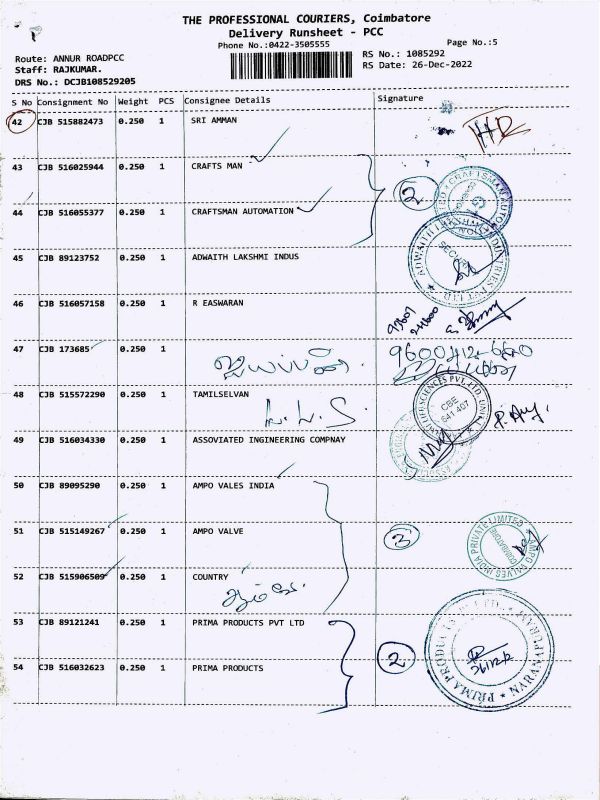 THE PROFESSIONAL COURIERS, Coimbatore
Delivery Runsheet - PCC
Phone No.:0422-3505555
Page No.:5
Route: ANNUR ROADPCC
RS No.: 1085292
Staff: RAJKUMAR.
RS Date: 26-Dec-2022
DRS No.: DCJB108529205
S No Consignment No Weight PCS Consignee Details Signature
42 CJB 515882473 0.250 1 SRI AMMAN
43 CJB 516025944 0.250 1 CRAFTS MAN
2
44 CJB 516055377 0.250 1 CRAFTSMAN AUTOMATION
45 CJB 89123752 0.250 1 ADWAITH LAKSHMI INDUS
46 CJB 516057158 0.250 1 R EASWARAN
47 CJB 173685 1
48 CJB 515572290 0.250 1 TAMILSELVAN
CBE
641 407
49 CJB 516034330 0.250 1 ASSOVIATED INGINEERING COMPNAY
50 CJB 89095290 0.250 1 AMPO VALES INDIA
51 CJB 515149267 0.250 1 AMPO VALVE
3
AMPO VALVES INDIA PRIVATE LIMITED
COIMBATORE
52 CJB 515906509 0.250 1 COUNTRY
53 CJB 89121241 0.250 1 PRIMA PRODUCTS PVT LTD
2
54 CJB 516032623 0.250 1 PRIMA PRODUCTS